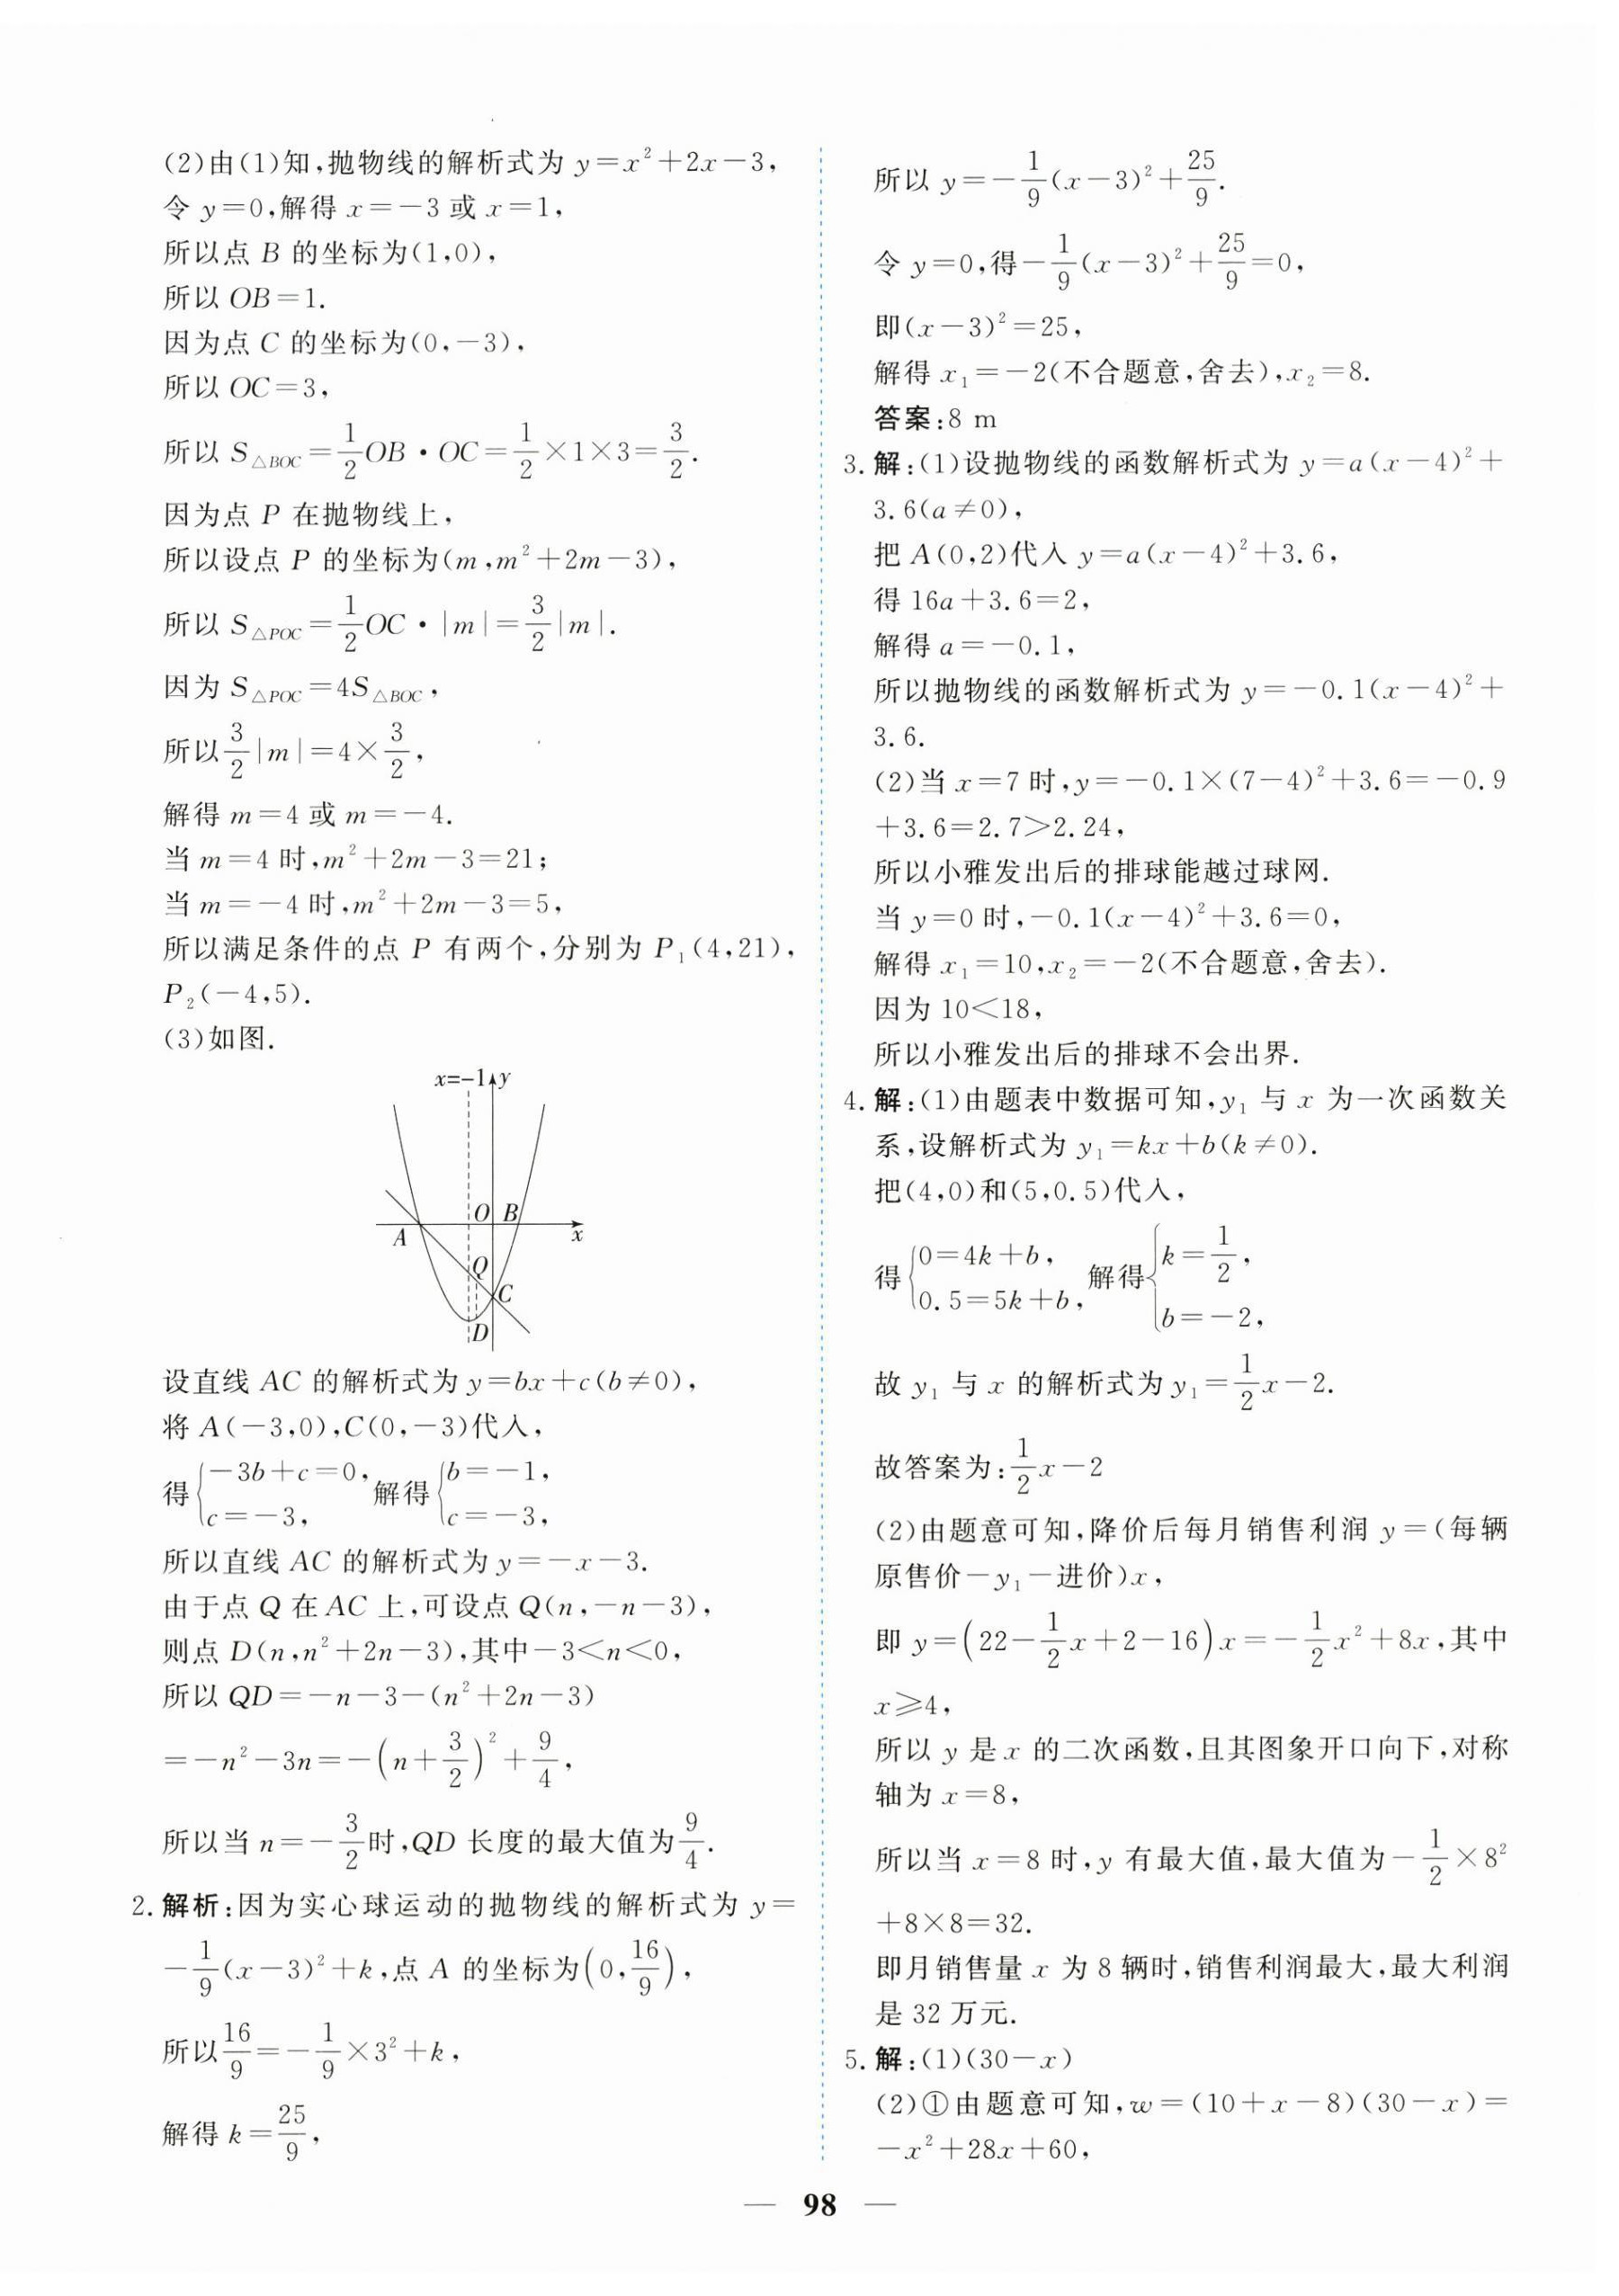 (2)由(1)知,抛物线的解析式为 y=x²+2x-3,
令 y=0,解得 x=-3 或 x=1,
所以点 B 的坐标为(1,0),
所以 OB=1.
因为点 C 的坐标为(0,-3),
所以 OC=3,
所以 S△BOC=1/2 OB·OC=1/2×1×3=3/2.
因为点 P 在抛物线上,
所以设点 P 的坐标为(m,m²+2m-3),
所以 S△POC=1/2 OC·|m|=3/2|m|.
因为 S△POC=4S△BOC,
所以 3/2|m|=4×3/2,
解得 m=4 或 m=-4.
当 m=4 时,m²+2m-3=21;
当 m=-4 时,m²+2m-3=5,
所以满足条件的点 P 有两个,分别为 P₁(4,21),
P₂(-4,5).
(3)如图.
x=-1 y
O B
A x
Q
C
D
设直线 AC 的解析式为 y=bx+c(b≠0),
将 A(-3,0),C(0,-3)代入,
得{-3b+c=0, c=-3, 解得{b=-1, c=-3,
所以直线 AC 的解析式为 y=-x-3.
由于点 Q 在 AC 上,可设点 Q(n,-n-3),
则点 D(n,n²+2n-3),其中-3<n<0,
所以 QD=-n-3-(n²+2n-3)
=-n²-3n=-(n+3/2)²+9/4,
所以当 n=-3/2 时,QD 长度的最大值为 9/4.
2. 解析:因为实心球运动的抛物线的解析式为 y=
-1/9(x-3)²+k,点 A 的坐标为(0,16/9),
所以 16/9=-1/9×3²+k,
解得 k=25/9,
所以 y=-1/9(x-3)²+25/9.
令 y=0,得-1/9(x-3)²+25/9=0,
即(x-3)²=25,
解得 x₁=-2(不合题意,舍去),x₂=8.
答案:8 m
3. 解:(1)设抛物线的函数解析式为 y=a(x-4)²+
3.6(a≠0),
把 A(0,2)代入 y=a(x-4)²+3.6,
得 16a+3.6=2,
解得 a=-0.1,
所以抛物线的函数解析式为 y=-0.1(x-4)²+
3.6.
(2)当 x=7 时,y=-0.1×(7-4)²+3.6=-0.9
+3.6=2.7>2.24,
所以小雅发出后的排球能越过球网.
当 y=0 时,-0.1(x-4)²+3.6=0,
解得 x₁=10,x₂=-2(不合题意,舍去).
因为 10<18,
所以小雅发出后的排球不会出界.
4. 解:(1)由题表中数据可知,y₁ 与 x 为一次函数关
系,设解析式为 y₁=kx+b(k≠0).
把(4,0)和(5,0.5)代入,
得{0=4k+b, 0.5=5k+b, 解得{k=1/2, b=-2,
故 y₁ 与 x 的解析式为 y₁=1/2x-2.
故答案为:1/2x-2
(2)由题意可知,降价后每月销售利润 y=(每辆
原售价-y₁-进价)x,
即 y=(22-1/2x+2-16)x=-1/2x²+8x,其中
x≥4,
所以 y 是 x 的二次函数,且其图象开口向下,对称
轴为 x=8,
所以当 x=8 时,y 有最大值,最大值为-1/2×8²
+8×8=32.
即月销售量 x 为 8 辆时,销售利润最大,最大利润
是 32 万元.
5. 解:(1)(30-x)
(2)①由题意可知,w=(10+x-8)(30-x)=
-x²+28x+60,
— 98 —